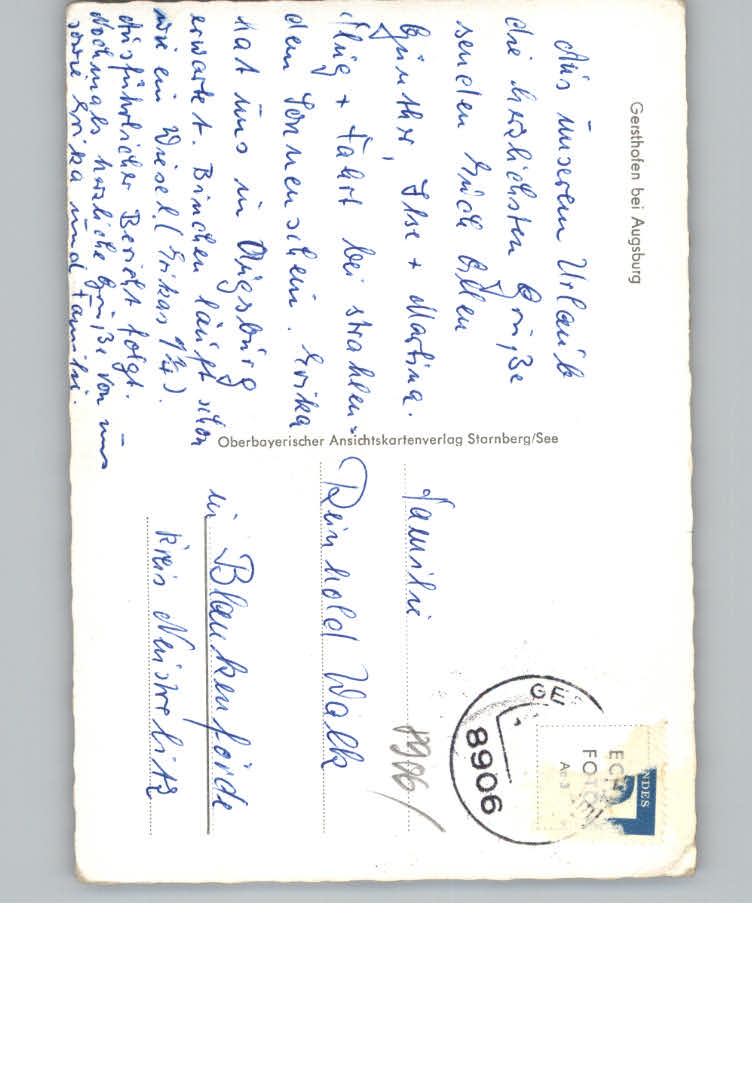 Gersthofen bei Augsburg
Aus unserem Urlaub
die herzlichsten Grüße
senden Euch Allen
Günther, Ilse + Martina.
Flug + Fahrt bei strahlen-
dem Sonnenschein. Erika
hat uns in Augsburg
erwartet. Binchen läuft schon
wie ein Wiesel (Erikas
Ausführlicher Bericht folgt. –
Nochmals herzliche Grüße von uns
sowie Erika und Familie.
Oberbayerischer Ansichtskartenverlag Starnberg/See
GE
8906
NDES
ECH
FOTO
8906/
Familie
Reinhold Walk
in Blankenförde
Kreis Neustrelitz